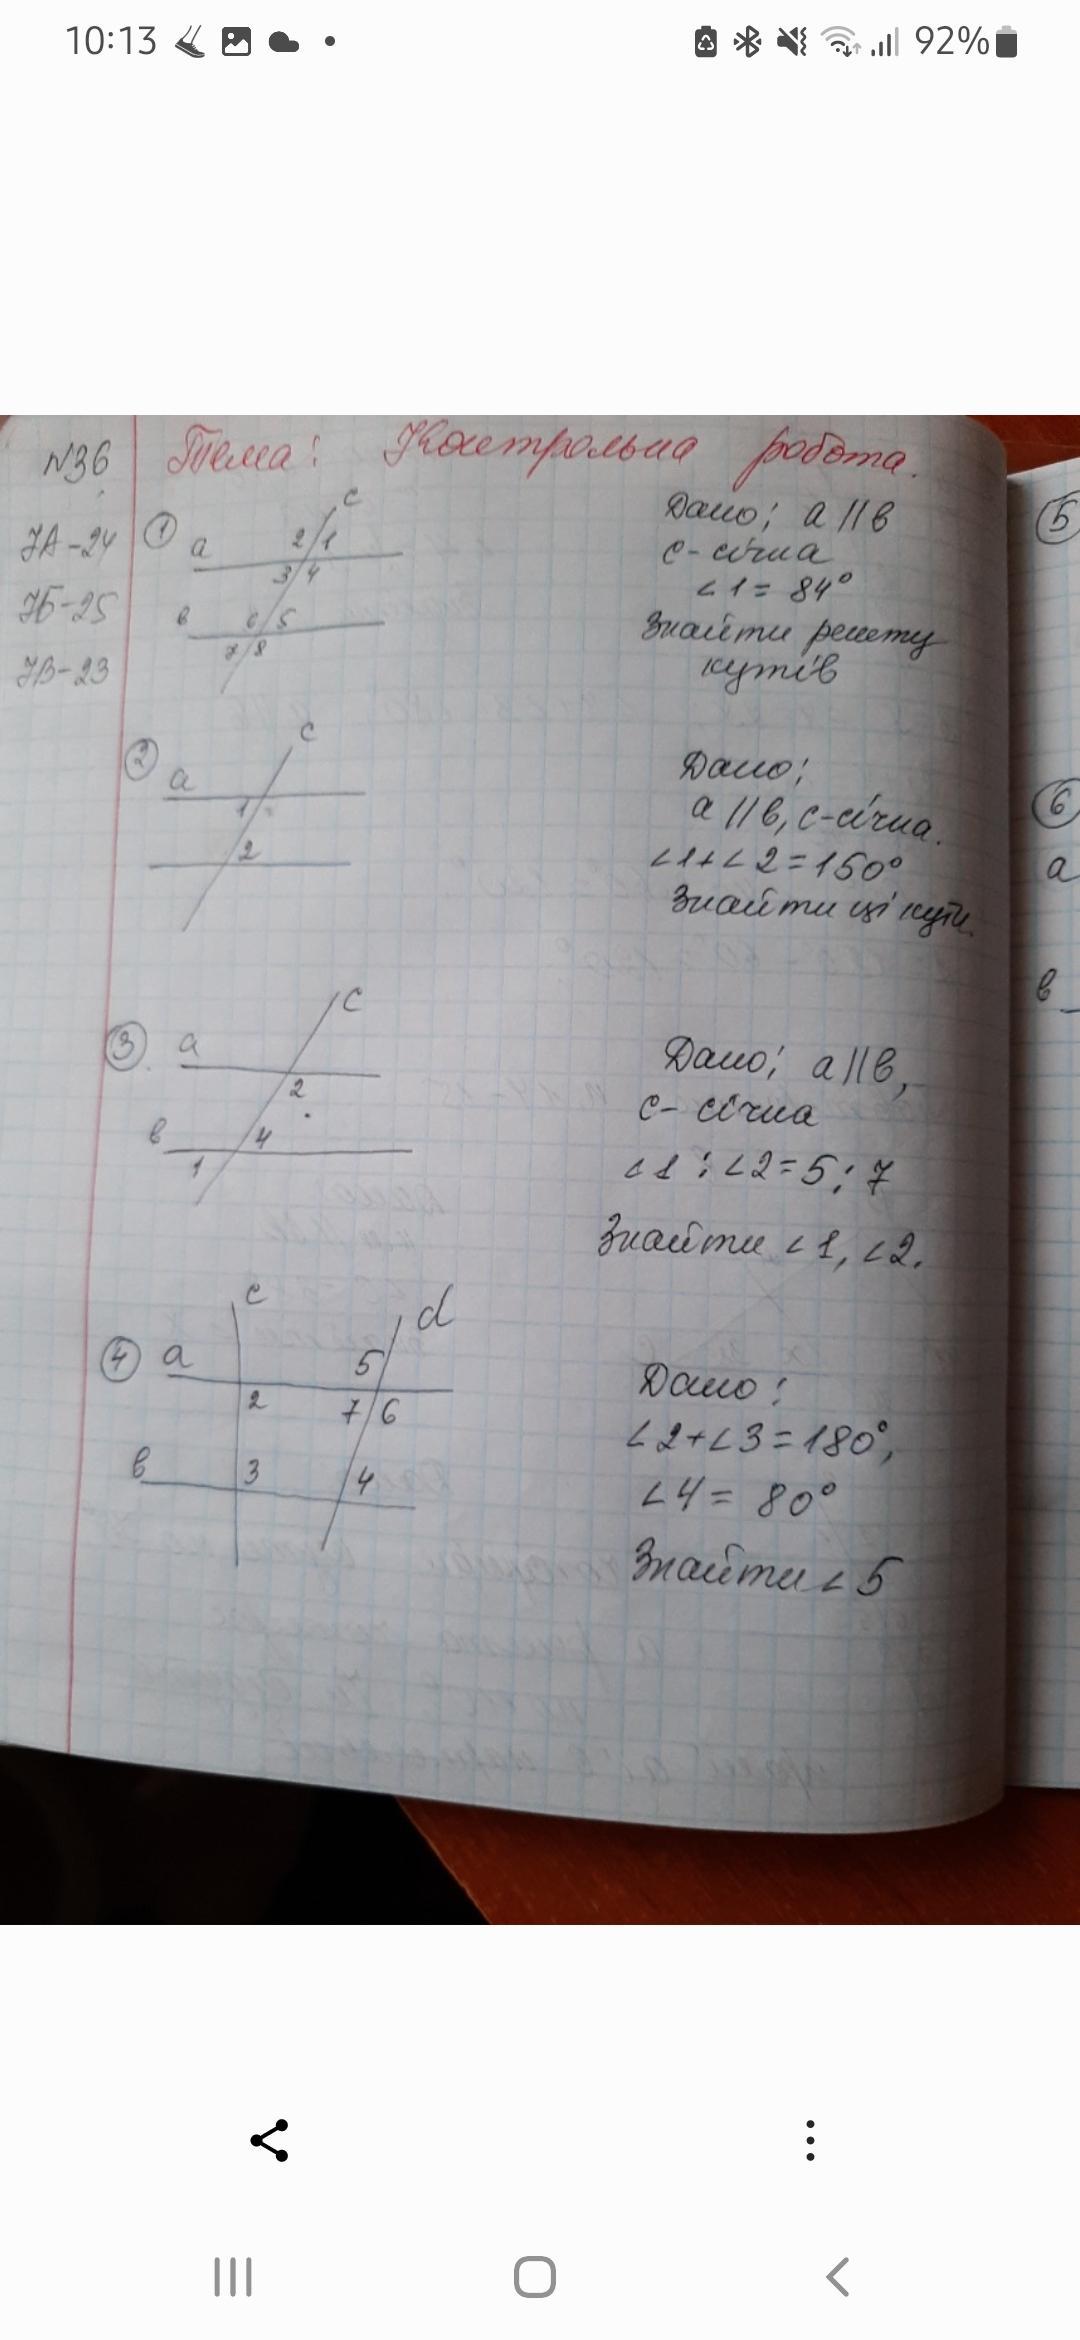 10:13 92%
N36 Тема: Контрольна робота.
7А-24
7Б-25
7В-23
1 a c
2 1
3 4
в 6 5
7 8
Дано: a || в
c - січна
∠1 = 84°
Знайти решту
кутів
2 a c
1
2
Дано:
a || в, c - січна.
∠1+∠2=150°
Знайти ці кути.
3 a c
2
в 4
1
Дано: a || в,
c - січна
∠1 : ∠2 = 5 : 7
Знайти ∠1, ∠2.
4 a c d
5
2 7 6
в 3 4
Дано:
∠2+∠3=180°,
∠4 = 80°
Знайти ∠5
5
6
a
в